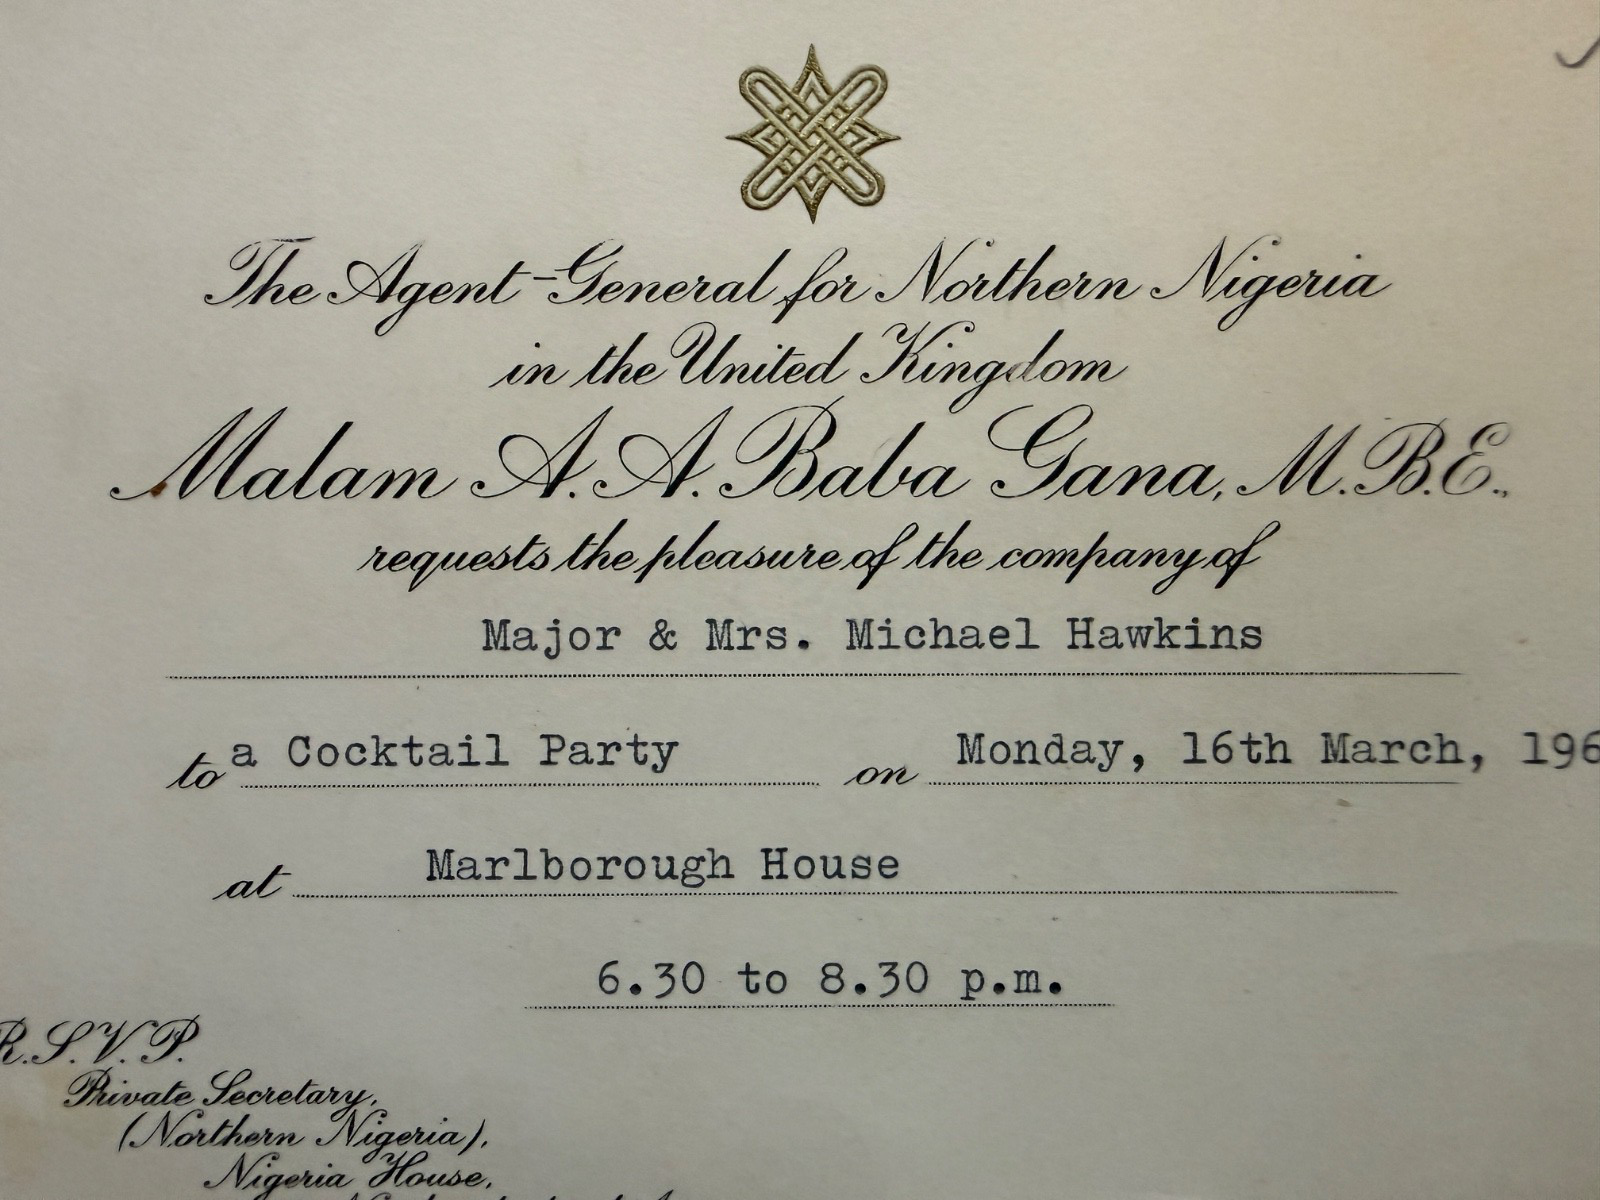 The Agent-General for Northern Nigeria
in the United Kingdom
Malam A. A. Baba Gana, M.B.E.,
requests the pleasure of the company of
Major & Mrs. Michael Hawkins
to a Cocktail Party on Monday, 16th March, 196
at Marlborough House
6.30 to 8.30 p.m.
R.S.V.P.
Private Secretary,
(Northern Nigeria),
Nigeria House,